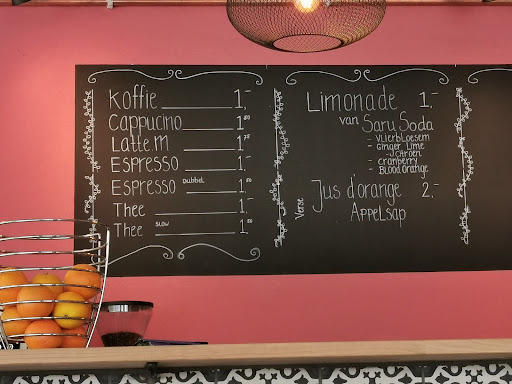 Koffie 1,-
Cappucino 1,80
Latte M 1,75
Espresso 1,-
Espresso Dubbel 1,50
Thee 1,-
Thee slow 1,50
Limonade 1,-
van Saru Soda
- Vlierbloesem
- Ginger Lime
- Citroen
- Cranberry
- Bloodorange
Verse Jus d'orange 2,-
Appelsap